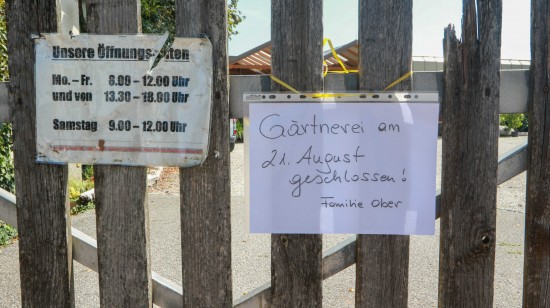 Unsere Öffnungszeiten
Mo. - Fr. 8.00 - 12.00 Uhr
und von 13.30 - 18.00 Uhr
Samstag 9.00 - 12.00 Uhr
Gärtnerei am
21. August
geschlossen!
Familie Ober